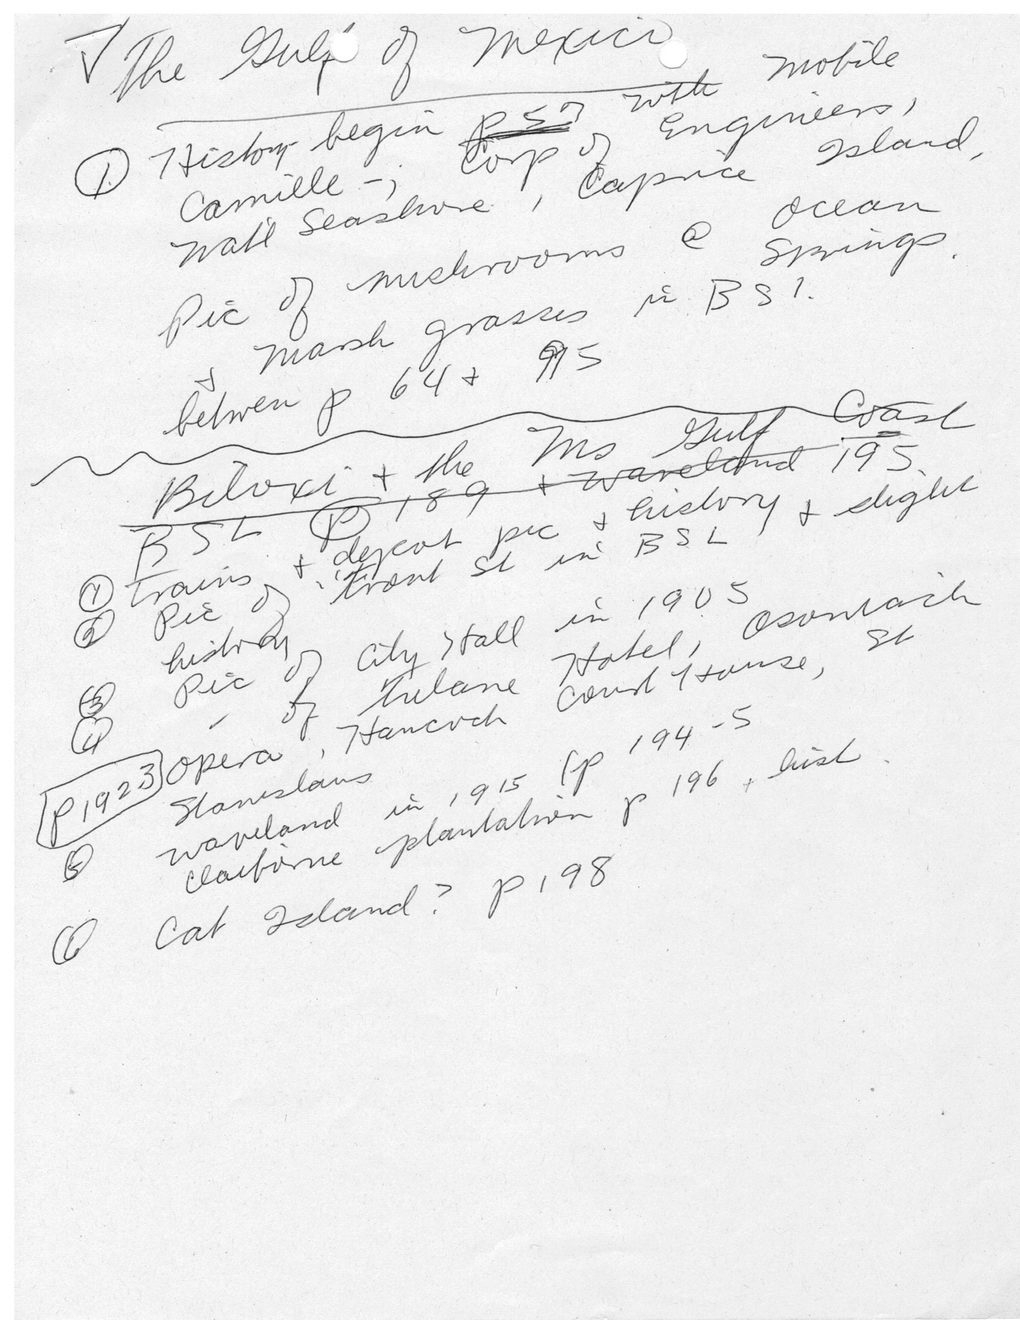 The Gulf of Mexico
① History begin p 57 with Mobile
Camille -; Corp of Engineers,
Natl Seashore, Caprice Island,
Pic of mushrooms @ Ocean
Springs.
+ Marsh grasses in BSL.
between p 64 + 95
Biloxi + the Ms Gulf Coast
BSL P 189 + Waveland 195
① trains + depot pic + history + slight
② Pic of "Front St in BSL
history
③ Pic of City Hall in 1905
④ " of Tulane Hotel,
Opera, Hancock Court House, St
Stanislaus
P 1923
⑤ Waveland in 1915 (p 194-5
Claiborne plantation p 196 + hist.
⑥ Cat Island? p 198